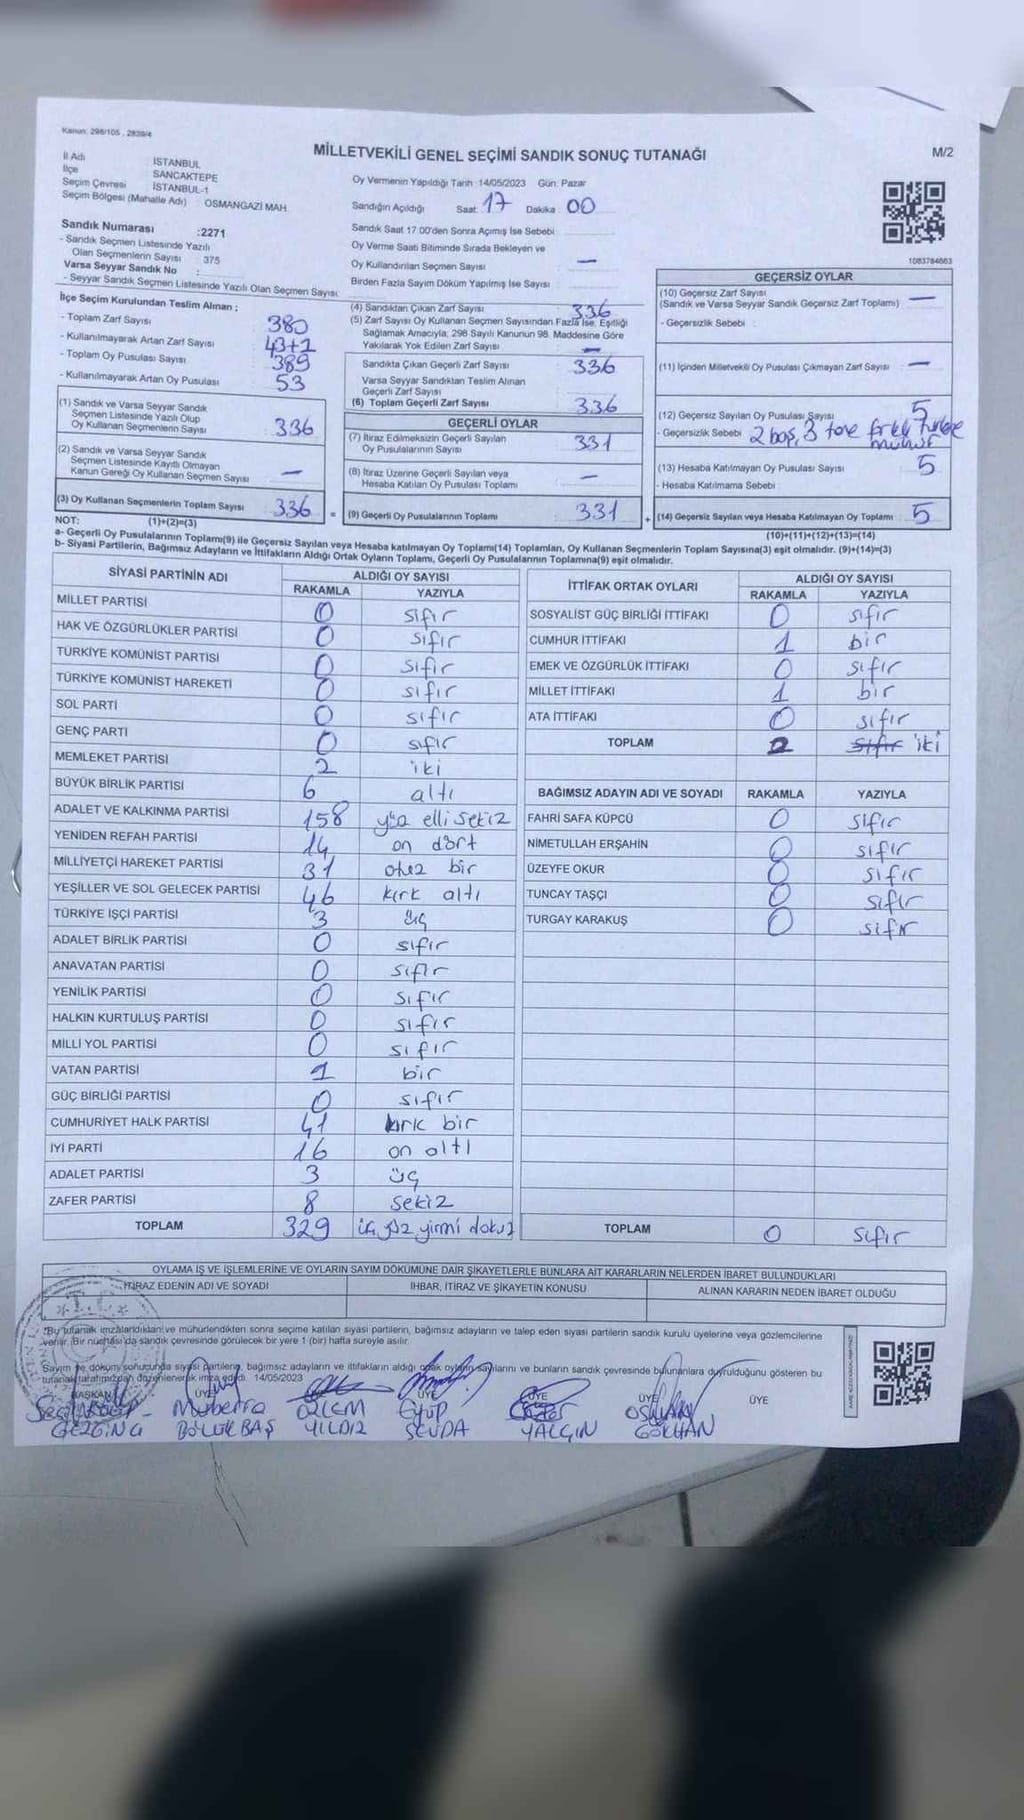 Kanun: 298/105 , 2839/4
MİLLETVEKİLİ GENEL SEÇİMİ SANDIK SONUÇ TUTANAĞI
M/2
İl Adı İSTANBUL
İlçe SANCAKTEPE
Seçim Çevresi İSTANBUL-1
Seçim Bölgesi (Mahalle Adı) OSMANGAZİ MAH
Oy Vermenin Yapıldığı Tarih 14/05/2023 Gün: Pazar
Sandığın Açıldığı Saat: 17 Dakika 00
Sandık Saat 17.00'den Sonra Açılmış İse Sebebi
Oy Verme Saati Bitiminde Sırada Bekleyen ve
Oy Kullandırılan Seçmen Sayısı —
Birden Fazla Sayım Döküm Yapılmış İse Sayısı
1083784663
Sandık Numarası :2271
- Sandık Seçmen Listesinde Yazılı
Olan Seçmenlerin Sayısı 375
Varsa Seyyar Sandık No :
- Seyyar Sandık Seçmen Listesinde Yazılı Olan Seçmen Sayısı
İlçe Seçim Kurulundan Teslim Alınan :
- Toplam Zarf Sayısı 380
- Kullanılmayarak Artan Zarf Sayısı
- Toplam Oy Pusulası Sayısı 389
- Kullanılmayarak Artan Oy Pusulası 53
(1) Sandık ve Varsa Seyyar Sandık
Seçmen Listesinde Yazılı Olup
Oy Kullanan Seçmenlerin Sayısı 336
(2) Sandık ve Varsa Seyyar Sandık
Seçmen Listesinde Kayıtlı Olmayan
Kanun Gereği Oy Kullanan Seçmen Sayısı —
(3) Oy Kullanan Seçmenlerin Toplam Sayısı 336
(4) Sandıktan Çıkan Zarf Sayısı 336
(5) Zarf Sayısı Oy Kullanan Seçmen Sayısından Fazla İse, Eşitliği
Sağlamak Amacıyla; 298 Sayılı Kanunun 98. Maddesine Göre
Yakılarak Yok Edilen Zarf Sayısı —
Sandıkta Çıkan Geçerli Zarf Sayısı 336
Varsa Seyyar Sandıktan Teslim Alınan
Geçerli Zarf Sayısı
(6) Toplam Geçerli Zarf Sayısı 336
GEÇERLİ OYLAR
(7) İtiraz Edilmeksizin Geçerli Sayılan
Oy Pusulalarının Sayısı 331
(8) İtiraz Üzerine Geçerli Sayılan veya
Hesaba Katılan Oy Pusulası Toplamı —
= (9) Geçerli Oy Pusulalarının Toplamı 331
GEÇERSİZ OYLAR
(10) Geçersiz Zarf Sayısı
(Sandık ve Varsa Seyyar Sandık Geçersiz Zarf Toplamı) —
- Geçersizlik Sebebi :
(11) İçinden Milletvekili Oy Pusulası Çıkmayan Zarf Sayısı —
(12) Geçersiz Sayılan Oy Pusulası Sayısı 5
- Geçersizlik Sebebi 2 boş, 3 tane mühür
(13) Hesaba Katılmayan Oy Pusulası Sayısı 5
- Hesaba Katılmama Sebebi
+ (14) Geçersiz Sayılan veya Hesaba Katılmayan Oy Toplamı 5
NOT: (1)+(2)=(3)
(10)+(11)+(12)+(13)=(14)
a- Geçerli Oy Pusulalarının Toplamı(9) ile Geçersiz Sayılan veya Hesaba katılmayan Oy Toplamı(14) Toplamları, Oy Kullanan Seçmenlerin Toplam Sayısına(3) eşit olmalıdır. (9)+(14)=(3)
b- Siyasi Partilerin, Bağımsız Adayların ve İttifakların Aldığı Ortak Oyların Toplamı, Geçerli Oy Pusulalarının Toplamına(9) eşit olmalıdır.
SİYASİ PARTİNİN ADI ALDIĞI OY SAYISI
RAKAMLA YAZIYLA
MİLLET PARTİSİ 0 sıfır
HAK VE ÖZGÜRLÜKLER PARTİSİ 0 sıfır
TÜRKİYE KOMÜNİST PARTİSİ 0 sıfır
TÜRKİYE KOMÜNİST HAREKETİ 0 sıfır
SOL PARTİ 0 sıfır
GENÇ PARTİ 0 sıfır
MEMLEKET PARTİSİ 2 iki
BÜYÜK BİRLİK PARTİSİ 6 altı
ADALET VE KALKINMA PARTİSİ 158 yüz elli sekiz
YENİDEN REFAH PARTİSİ 14 on dört
MİLLİYETÇİ HAREKET PARTİSİ 31 otuz bir
YEŞİLLER VE SOL GELECEK PARTİSİ 46 kırk altı
TÜRKİYE İŞÇİ PARTİSİ 3 üç
ADALET BİRLİK PARTİSİ 0 sıfır
ANAVATAN PARTİSİ 0 sıfır
YENİLİK PARTİSİ 0 sıfır
HALKIN KURTULUŞ PARTİSİ 0 sıfır
MİLLİ YOL PARTİSİ 0 sıfır
VATAN PARTİSİ 1 bir
GÜÇ BİRLİĞİ PARTİSİ 0 sıfır
CUMHURİYET HALK PARTİSİ 41 kırk bir
İYİ PARTİ 16 on altı
ADALET PARTİSİ 3 üç
ZAFER PARTİSİ 8 sekiz
TOPLAM 329 üç yüz yirmi dokuz
İTTİFAK ORTAK OYLARI ALDIĞI OY SAYISI
RAKAMLA YAZIYLA
SOSYALİST GÜÇ BİRLİĞİ İTTİFAKI 0 sıfır
CUMHUR İTTİFAKI 1 bir
EMEK VE ÖZGÜRLÜK İTTİFAKI 0 sıfır
MİLLET İTTİFAKI 1 bir
ATA İTTİFAKI 0 sıfır
TOPLAM 2 sıfır iki
BAĞIMSIZ ADAYIN ADI VE SOYADI RAKAMLA YAZIYLA
FAHRİ SAFA KÜPCÜ 0 sıfır
NİMETULLAH ERŞAHİN 0 sıfır
ÜZEYFE OKUR 0 sıfır
TUNCAY TAŞÇI 0 sıfır
TURGAY KARAKUŞ 0 sıfır
TOPLAM 0 sıfır
OYLAMA İŞ VE İŞLEMLERİNE VE OYLARIN SAYIM DÖKÜMÜNE DAİR ŞİKAYETLERLE BUNLARA AİT KARARLARIN NELERDEN İBARET BULUNDUKLARI
İTİRAZ EDENİN ADI VE SOYADI İHBAR, İTİRAZ VE ŞİKAYETİN KONUSU ALINAN KARARIN NEDEN İBARET OLDUĞU
T.C.
"Bu tutanak imzalandıktan ve mühürlendikten sonra seçime katılan siyasi partilerin, bağımsız adayların ve talep eden siyasi partilerin sandık kurulu üyelerine veya gözlemcilerine
verilir. Bir nüshası da sandık çevresinde görülecek bir yere 1 (bir) hafta süreyle asılır.
Sayım ve döküm sonucunda siyasi partilerin, bağımsız adayların ve ittifakların aldığı ortak oyların sayılarını ve bunların sandık çevresinde bulunanlara duyrulduğunu gösteren bu
tutanak tarafımızdan düzenlenerek imza edildi. 14/05/2023
BAŞKAN ÜYE ÜYE ÜYE ÜYE ÜYE
ÖZLEM Eyüp
GEZGİNCİ BÖLÜKBAŞ YILDIZ SEVDA YALÇIN GÖKHAN